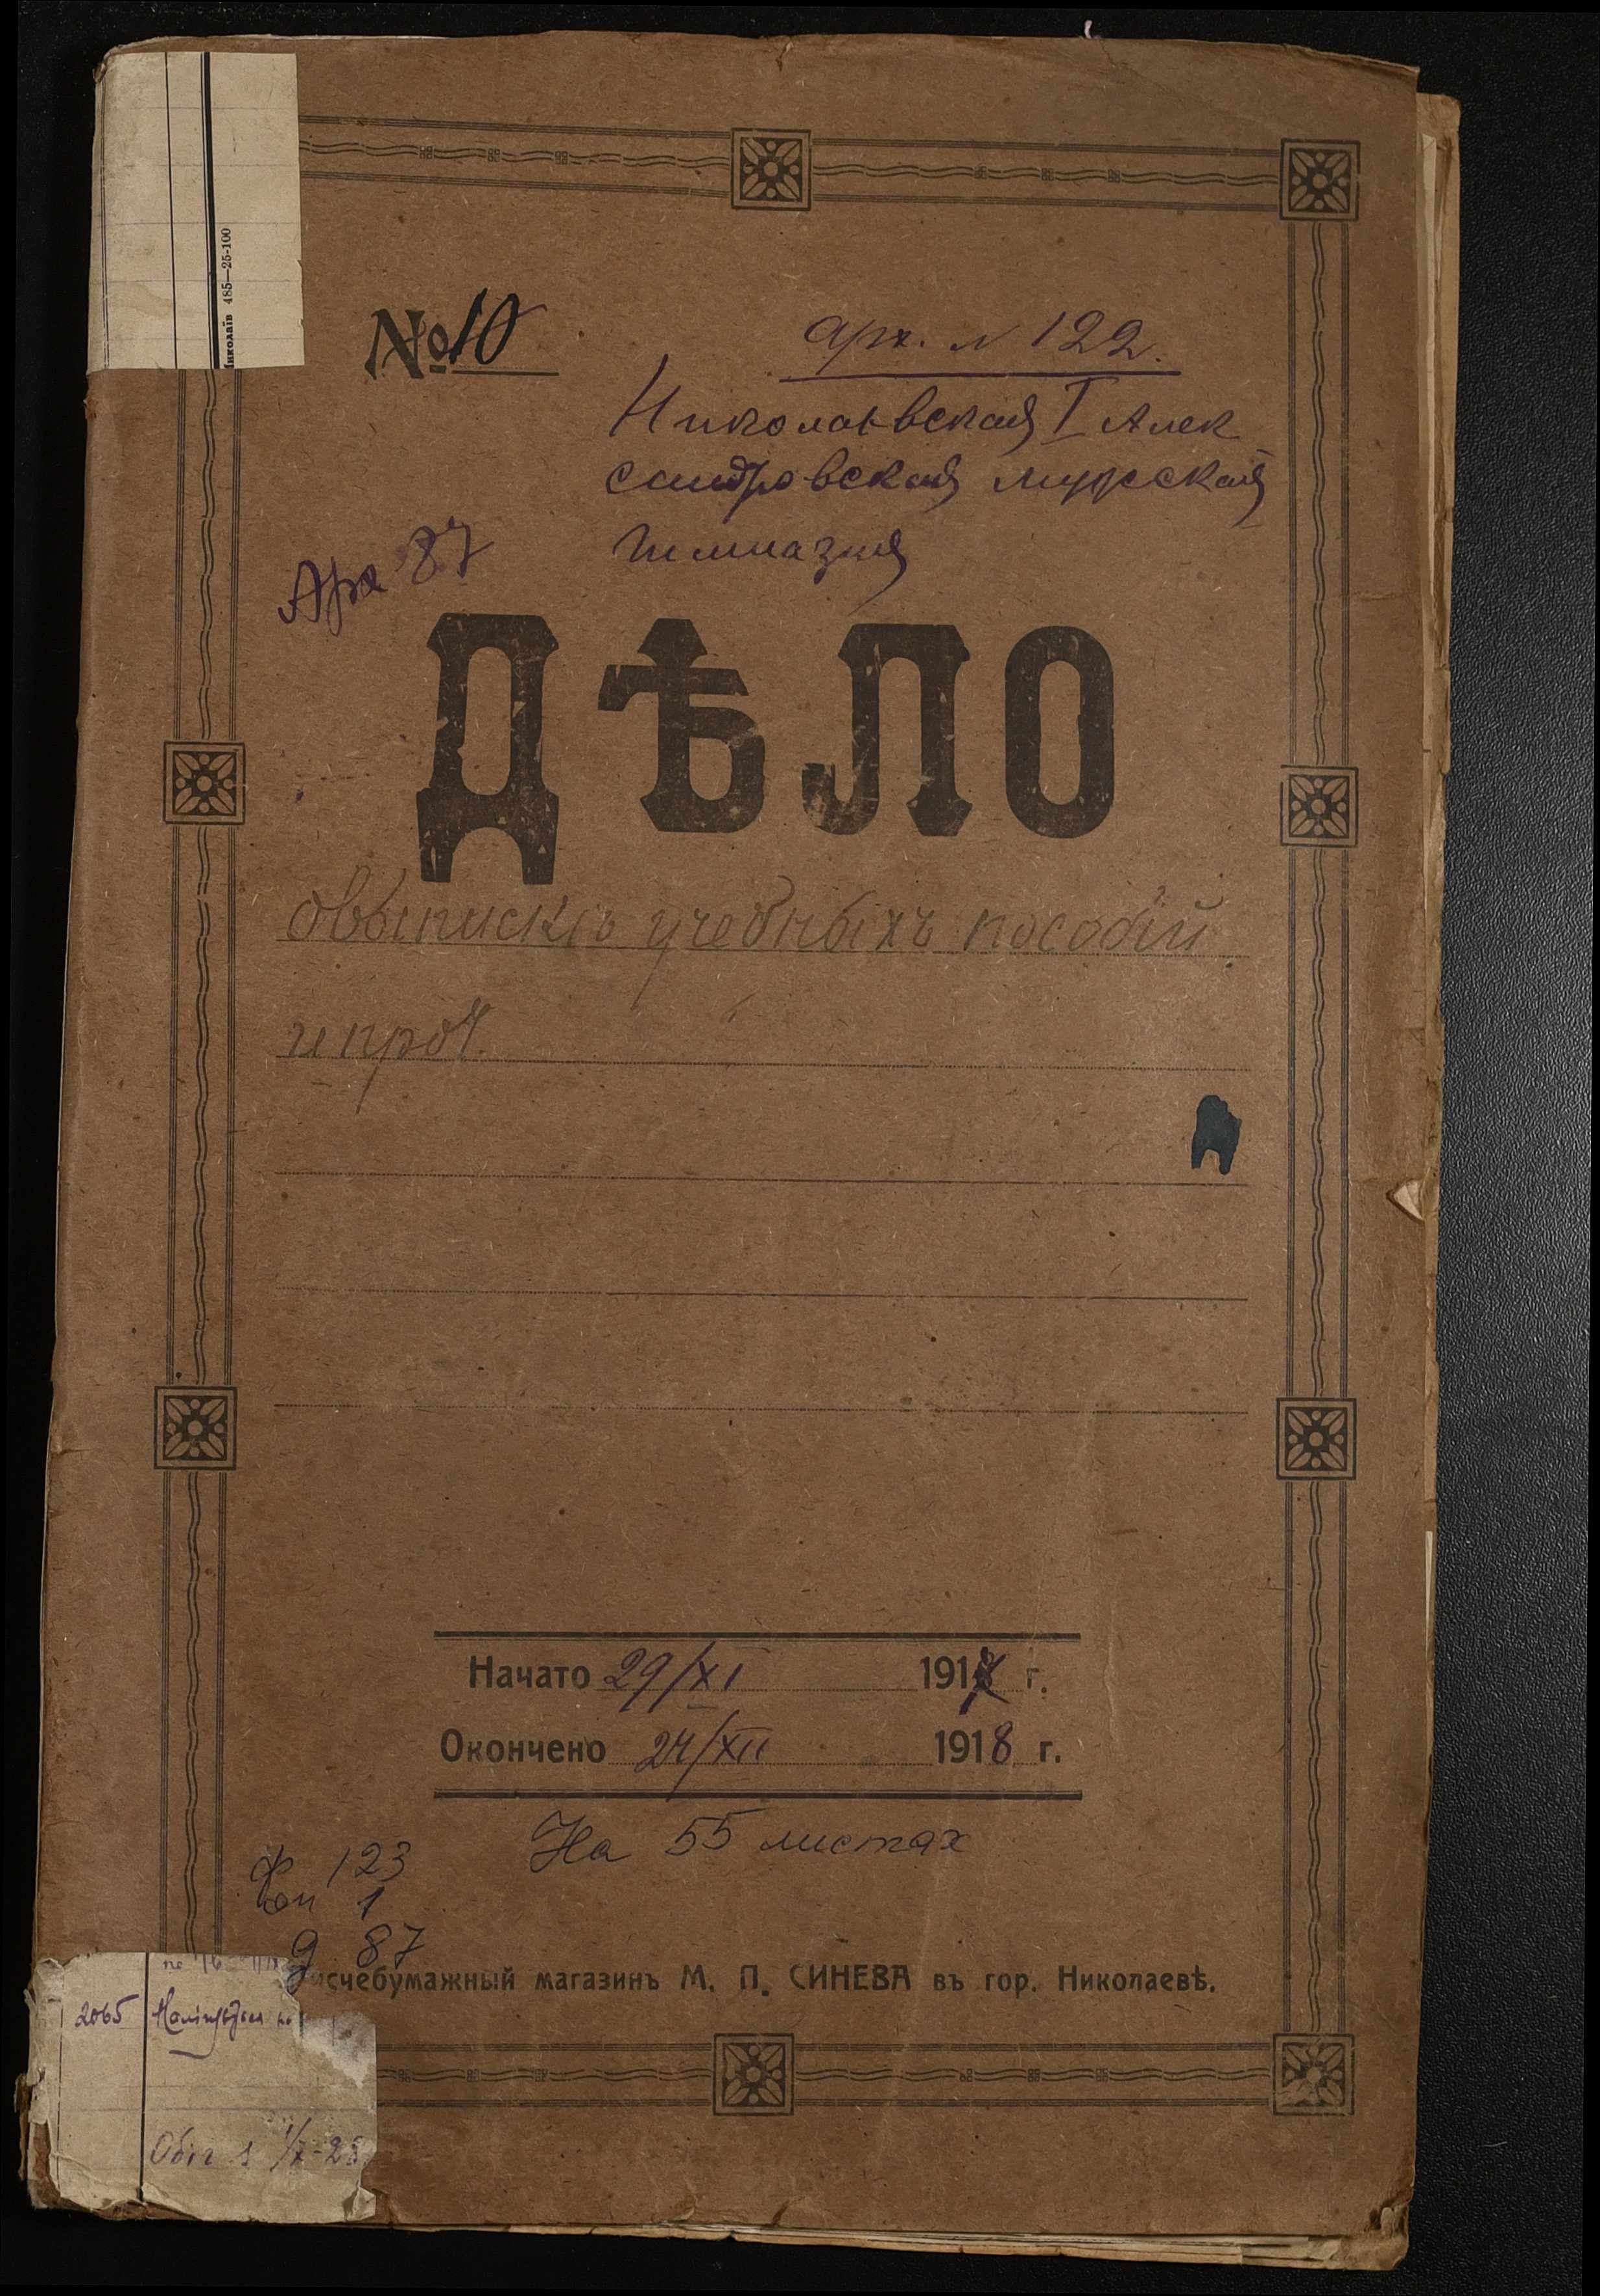 485—25-100
№ 10
арх. N 122.
Николаевская I Алек
сандровская мужская
гимназия
Арх 87
ДѢЛО
о выпискѣ учебныхъ пособій
и проч.
Начато 29/XI 191 г.
Окончено 24/XII 1918 г.
На 55 листах
Ф 123
оп 1
д 87
исчебумажный магазинъ М. П. СИНЕВА въ гор. Николаевѣ.
2065